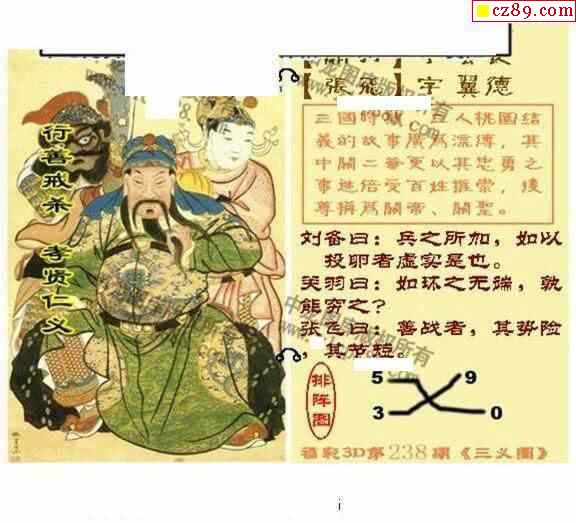 cz89.com
【張飛】字翼德
三國時蜀 三人桃園結
義的故事廣爲流傳，其
中關二爺更以其忠勇之
事迹倍受百姓推崇，後
尊稱爲關帝、關聖。
行善戒杀 孝贤仁义
刘备曰：兵之所加，如以
投卵者虚实是也。
关羽曰：如环之无端，孰
能穷之？
张飞曰：善战者，其势险
，其节短。
排阵图
5 9
3 0
福彩3D第238期《三义图》